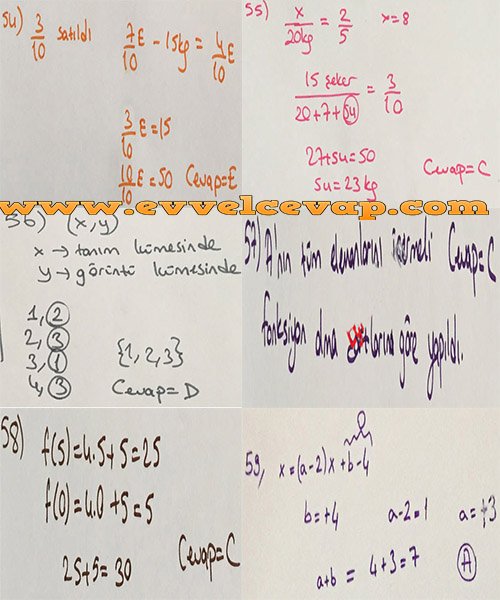 54) 3/10 satıldı
7/10 E - 15kg = 4/10 E
3/10 E = 15
10/10 E = 50 Cevap=E
55) x/20kg = 2/5 x=8
15 şeker/20+7+su = 3/10
27+su=50
su=23kg Cevap=C
www.evvelcevap.com
56) (x,y)
x → tanım kümesinde
y → görüntü kümesinde
1,2
2,3
3,1
4,3
{1,2,3}
Cevap=D
57) A'nın tüm elemanlarını içermeli Cevap=C
fonksiyon olma şartlarına göre yapıldı.
58) f(5)=4.5+5=25
f(0)=4.0+5=5
25+5=30 Cevap=C
59, x=(a-2)x+b-4
b=+4 a-2=1 a=+3
a+b = 4+3=7 A